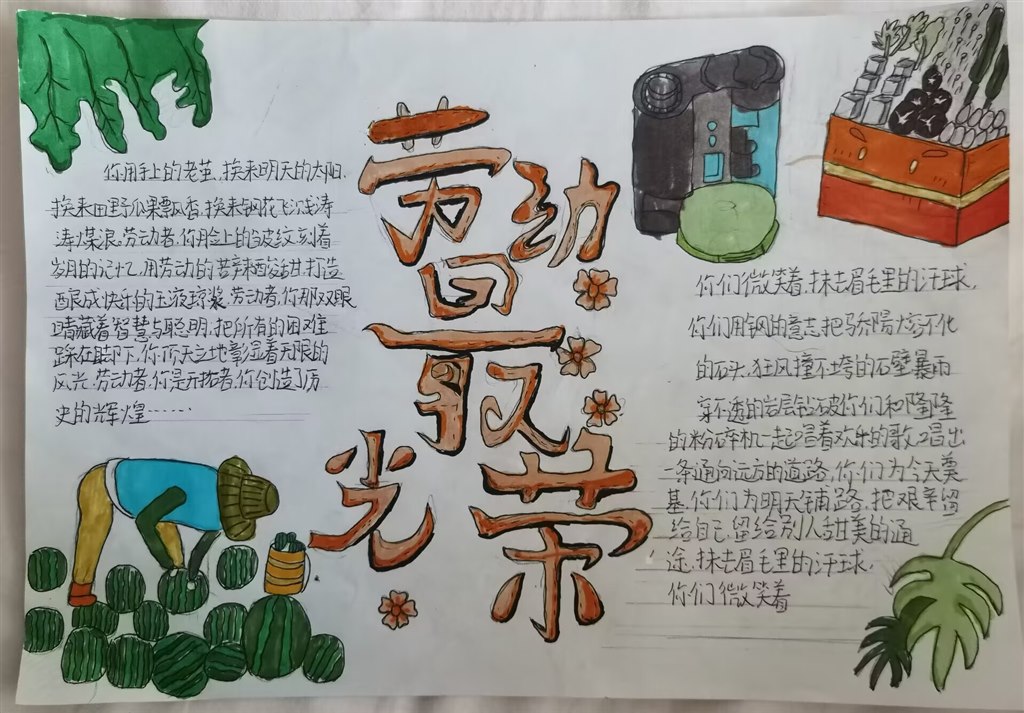 劳动最光荣
你用手上的老茧,换来明天的太阳,
换来田野瓜果飘香,换来钢花飞溅涛
涛煤浪。劳动者,你用脸上的皱纹,刻着
岁月的记忆,用劳动的苦辣酸甜,打造
酿成快乐的玉液琼浆。劳动者,你那双眼
睛藏着智慧与聪明,把所有的困难
踩在脚下,你顶天立地彰显着无限的
风光,劳动者,你是开拓者,你创造了历
史的辉煌……
你们微笑着,抹去眉毛里的汗球,
你们用钢的意志把骄阳烤不化
的石头,狂风撞不垮的石壁暴雨
穿不透的岩层钻破你们和隆隆
的粉碎机一起唱着欢乐的歌,唱出
一条通向远方的道路,你们为今天奠
基,你们为明天铺路,把艰辛留
给自己,留给别人甜美的通
途,抹去眉毛里的汗球,
你们微笑着